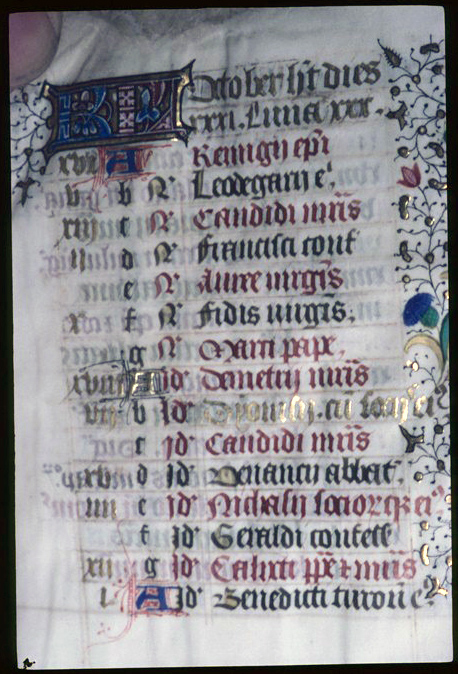 KL October ht dies
xxxi. Luna xxx.
xvi A Remigii epi
v b N Leodegarii e
xiii c N Candidi mris
ii d N Francisci conf
e N Auree uirgis
x f N Fidis uirgis.
g N Marci pape.
xviii A id Demetrii mris
vii b id Dyonisii cu soc
c id Candidi mris
xv d id Venancii abbat.
iiii e id Nichasii sociorqz ei
f id Geraldi confess
xii g id Calixti ppe z mris
i A id Benedicti turon e